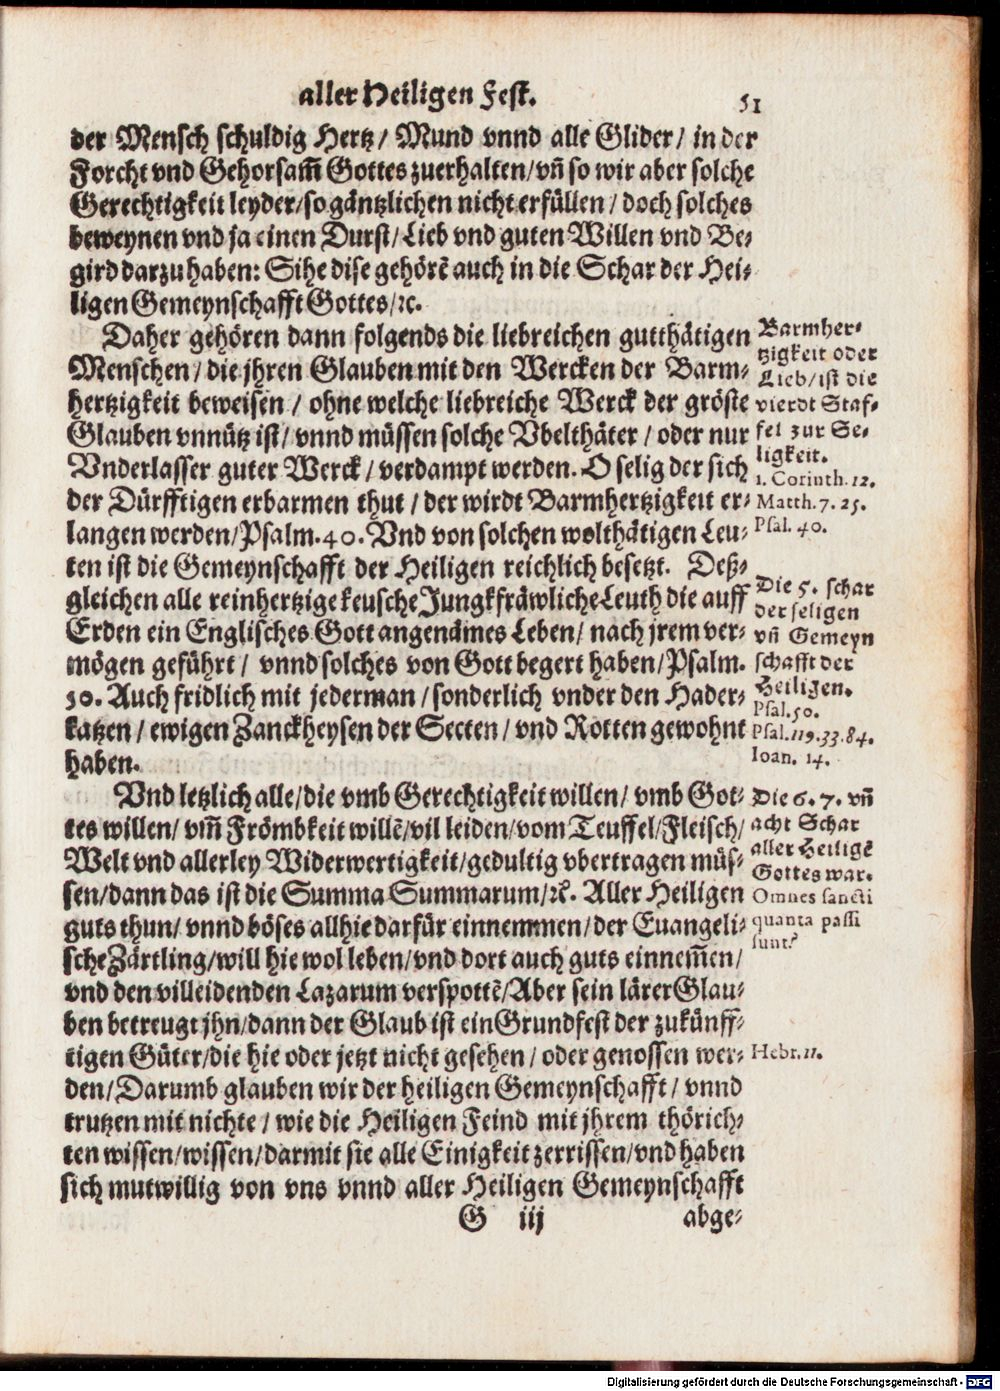 aller Heiligen Fest.
51
der Mensch schuldig Hertz / Mund vnnd alle Glider / in der
Forcht vnd Gehorsam̃ Gottes zuerhalten / vñ so wir aber solche
Gerechtigkeit leyder / so gäntzlichen nicht erfüllen / doch solches
beweynen vnd ja einen Durst / Lieb vnd guten Willen vnd Be⸗
gird darzu haben: Sihe dise gehörẽ auch in die Schar der Hei⸗
ligen Gemeynschafft Gottes / ꝛc.
Daher gehören dann folgends die liebreichen gutthätigen
Menschen / die jhren Glauben mit den Wercken der Barm⸗
hertzigkeit beweisen / ohne welche liebreiche Werck der gröste
Glauben vnnütz ist / vnnd müssen solche Vbelthäter / oder nur
Vnderlasser guter Werck / verdampt werden. O selig der sich
der Dürfftigen erbarmen thut / der wirdt Barmhertzigkeit er⸗
langen werden / Psalm. 40. Vnd von solchen wolthätigen Leu⸗
ten ist die Gemeynschafft der Heiligen reichlich besetzt. Deß⸗
gleichen alle reinhertzige keusche Jungkfräwliche Leuth die auff
Erden ein Englisches Gott angenämes Leben / nach jrem ver⸗
mögen geführt / vnnd solches von Gott begert haben / Psalm.
50. Auch fridlich mit jederman / sonderlich vnder den Hader⸗
katzen / ewigen Zanckheysen der Secten / vnd Rotten gewohnt
haben.
Vnd letzlich alle / die vmb Gerechtigkeit willen / vmb Got⸗
tes willen / vm̃ Frömbkeit willẽ / vil leiden / vom Teuffel / Fleisch /
Welt vnd allerley Widerwertigkeit / gedultig vbertragen müs⸗
sen / dann das ist die Summa Summarum / ꝛc. Aller Heiligen
guts thun / vnnd böses allhie darfür einnemmen / der Euangeli⸗
sche Zärtling / will hie wol leben / vnd dort auch guts einnem̃en /
vnd den villeidenden Lazarum verspottẽ / Aber sein lärer Glau⸗
ben betreugt jhn / dann der Glaub ist ein Grundfest der zukünff⸗
tigen Güter / die hie oder jetzt nicht gesehen / oder genossen wer⸗
den / Darumb glauben wir der heiligen Gemeynschafft / vnnd
trutzen mit nichte / wie die Heiligen Feind mit jhrem thörich⸗
ten wissen / wissen / darmit sie alle Einigkeit zerrissen / vnd haben
sich mutwillig von vns vnnd aller Heiligen Gemeynschafft
G iij
abge⸗
Barmher⸗
tzigkeit oder
Lieb / ist die
vierdt Staf⸗
fel zur Se⸗
ligkeit.
1. Corinth. 12.
Matth. 7. 25.
Psal. 40.
Die 5. schar
der seligen
vñ Gemeyn
schafft der
Heiligen.
Psal. 50.
Psal. 119. 33. 84.
Ioan. 14.
Die 6. 7. vñ
acht Schar
aller Heiligẽ
Gottes war.
Omnes sancti
quanta passi
sunt?
Hebr. 11.
Digitalisierung gefördert durch die Deutsche Forschungsgemeinschaft - DFG